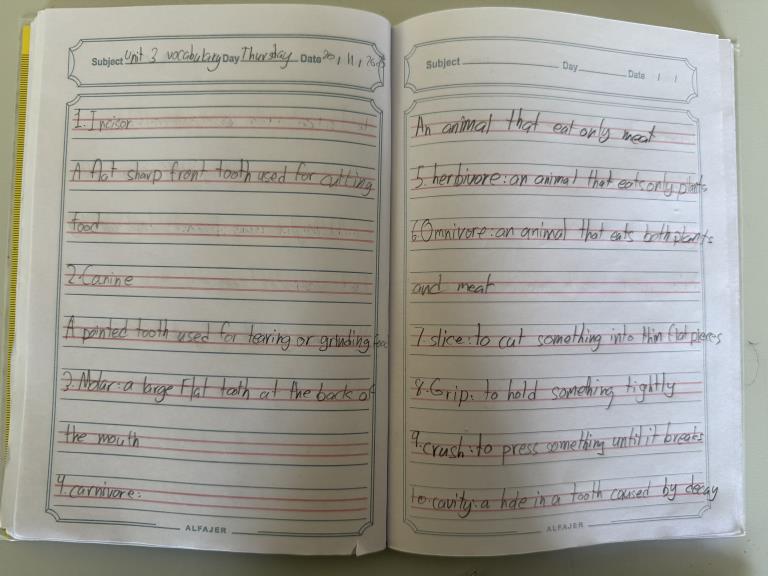 Subject Unit 3 vocabulary Day Thursday Date 20, 11,
1. Incisor
A flat sharp front tooth used for cutting
food
2. Canine
A pointed tooth used for tearing or grinding food
3. Molar: a large Flat tooth at the back of
the mouth
4. carnivore:
ALFAJER
Subject Day Date / /
An animal that eat only meat
5. herbivore: an animal that eats only plants
6. Omnivore: an animal that eats both plants
and meat
7. slice: to cut something into thin flat pieces
8. Grip: to hold something tightly
9. crush: to press something until it breaks
10. cavity: a hole in a tooth caused by decay
ALFAJER